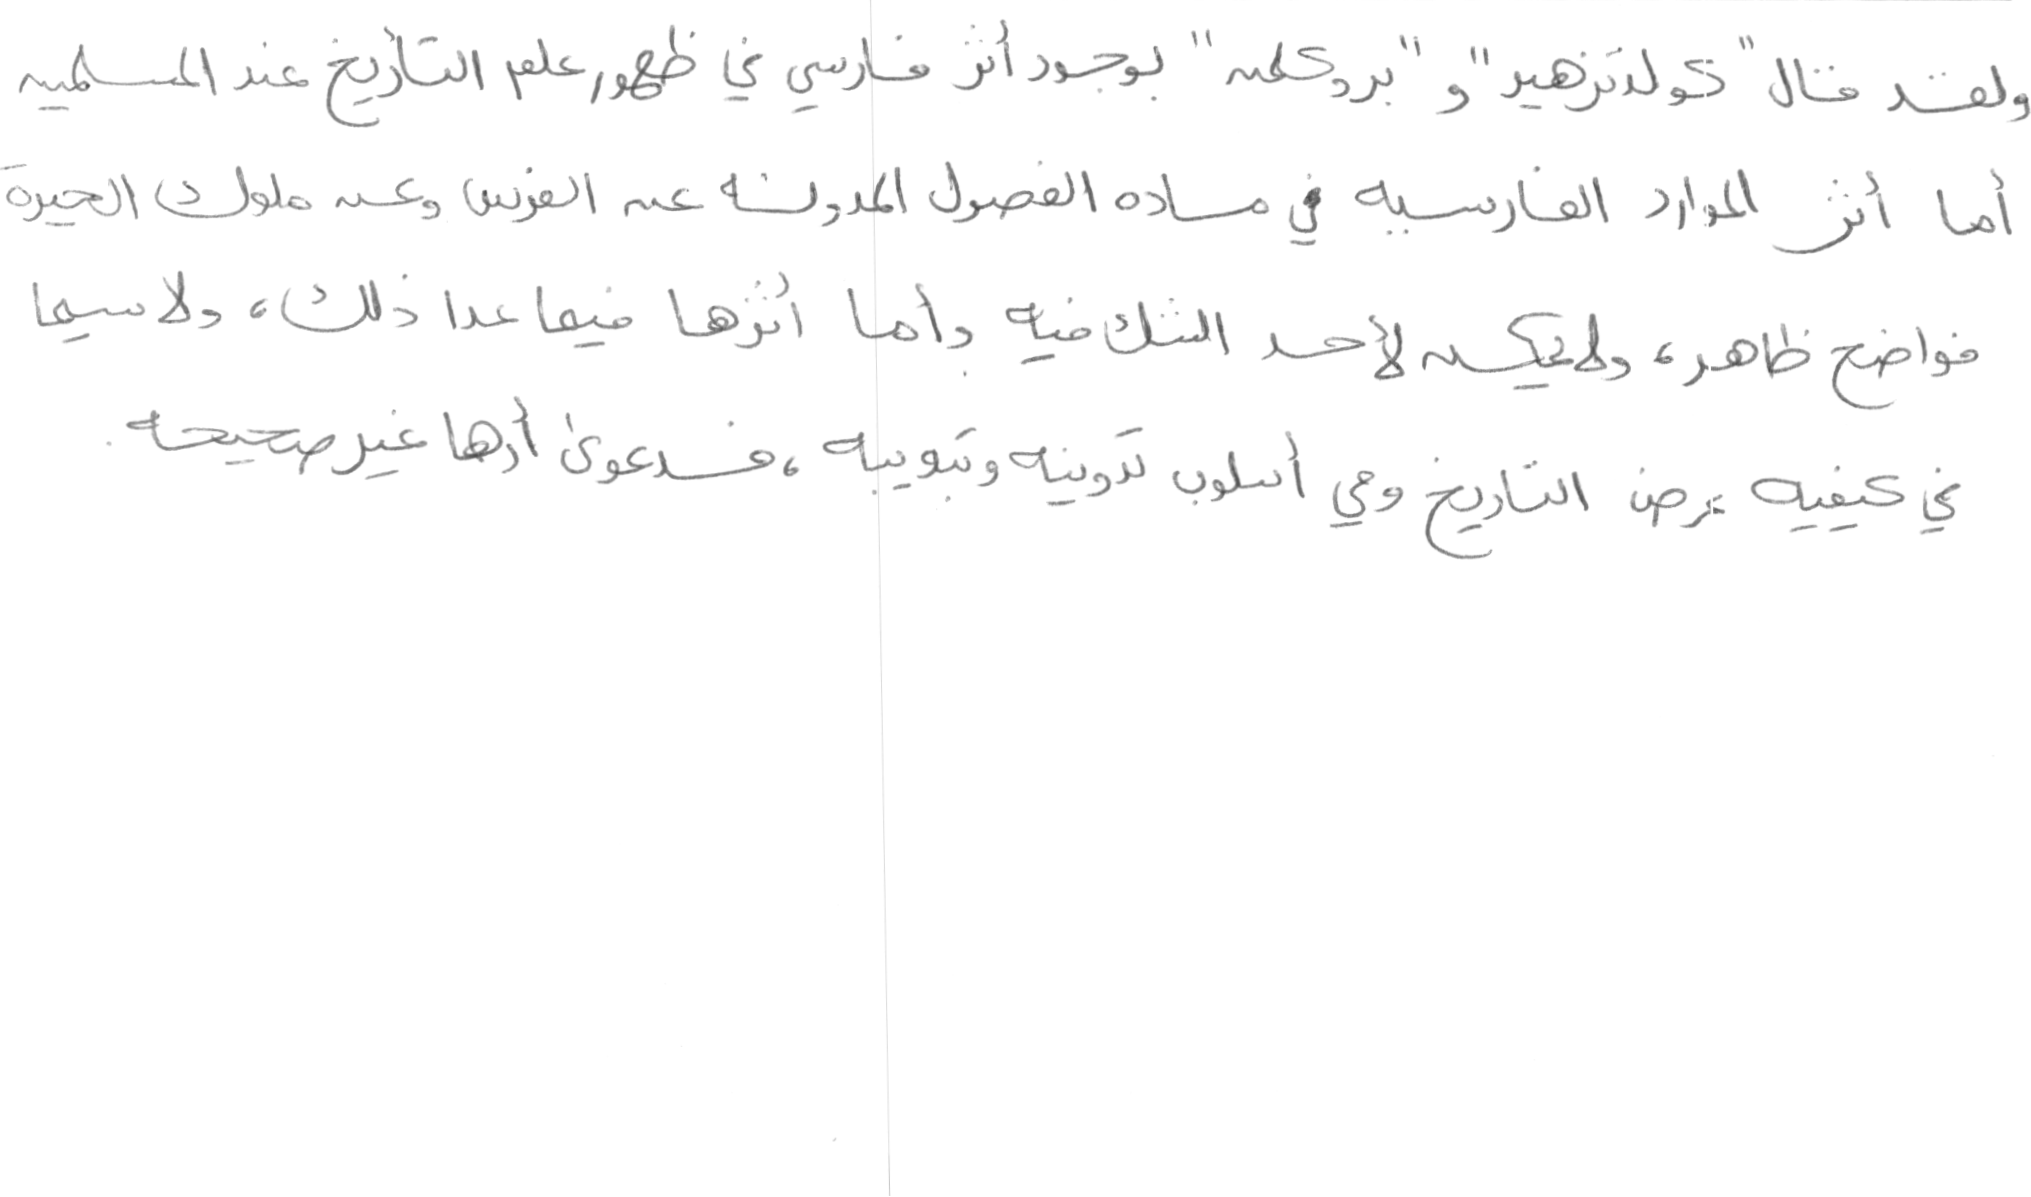 ولقد قال "كولدتزهير" و "بروكلمن" بوجود أثر فارسي في ظهور علم التأريخ عند المسلمين
أما أثر الموارد الفارسيه في ماده الفصول المدونه عن الفرس وعن ملوك الحيرة
فواضح ظاهر، ولا يمكن لأحد الشك فيه وأما أثرها فيما عدا ذلك، ولا سيما
في كيفيه عرض التاريخ وفي أسلوب تدوينه وتبويبه، فدعوى أرها غير صحيحه.